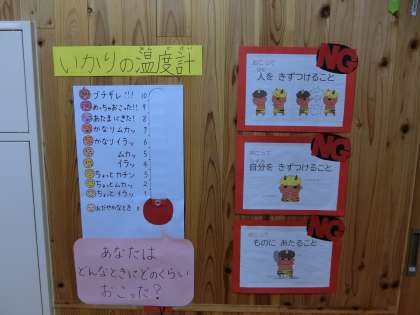 いかりの温度計
ブチギレ!!! 10
めっちゃおこった!! 9
あたまにきた! 8
かなりムカッ 7
かなりイラッ 6
ムカッ 5
イラッ 4
ちょっとカチン 3
ちょっとムカッ 2
ちょっとイラッ 1
おだやかなとき
あなたは
どんなときにどのくらい
おこった?
NG
おこって
人を きずつけること
NG
おこって
自分を きずつけること
NG
おこって
ものに あたること